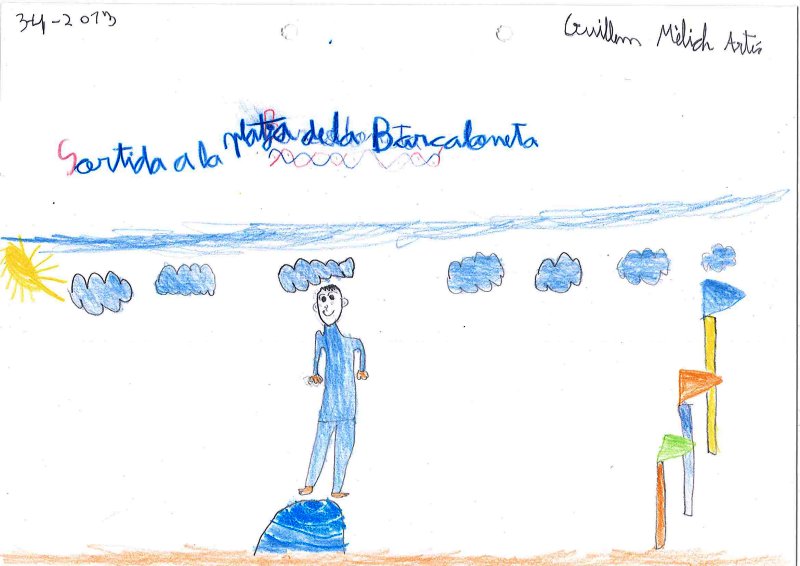 34-2013
Guillem Mélich Artís
Sortida a la platja de la Barcaloneta